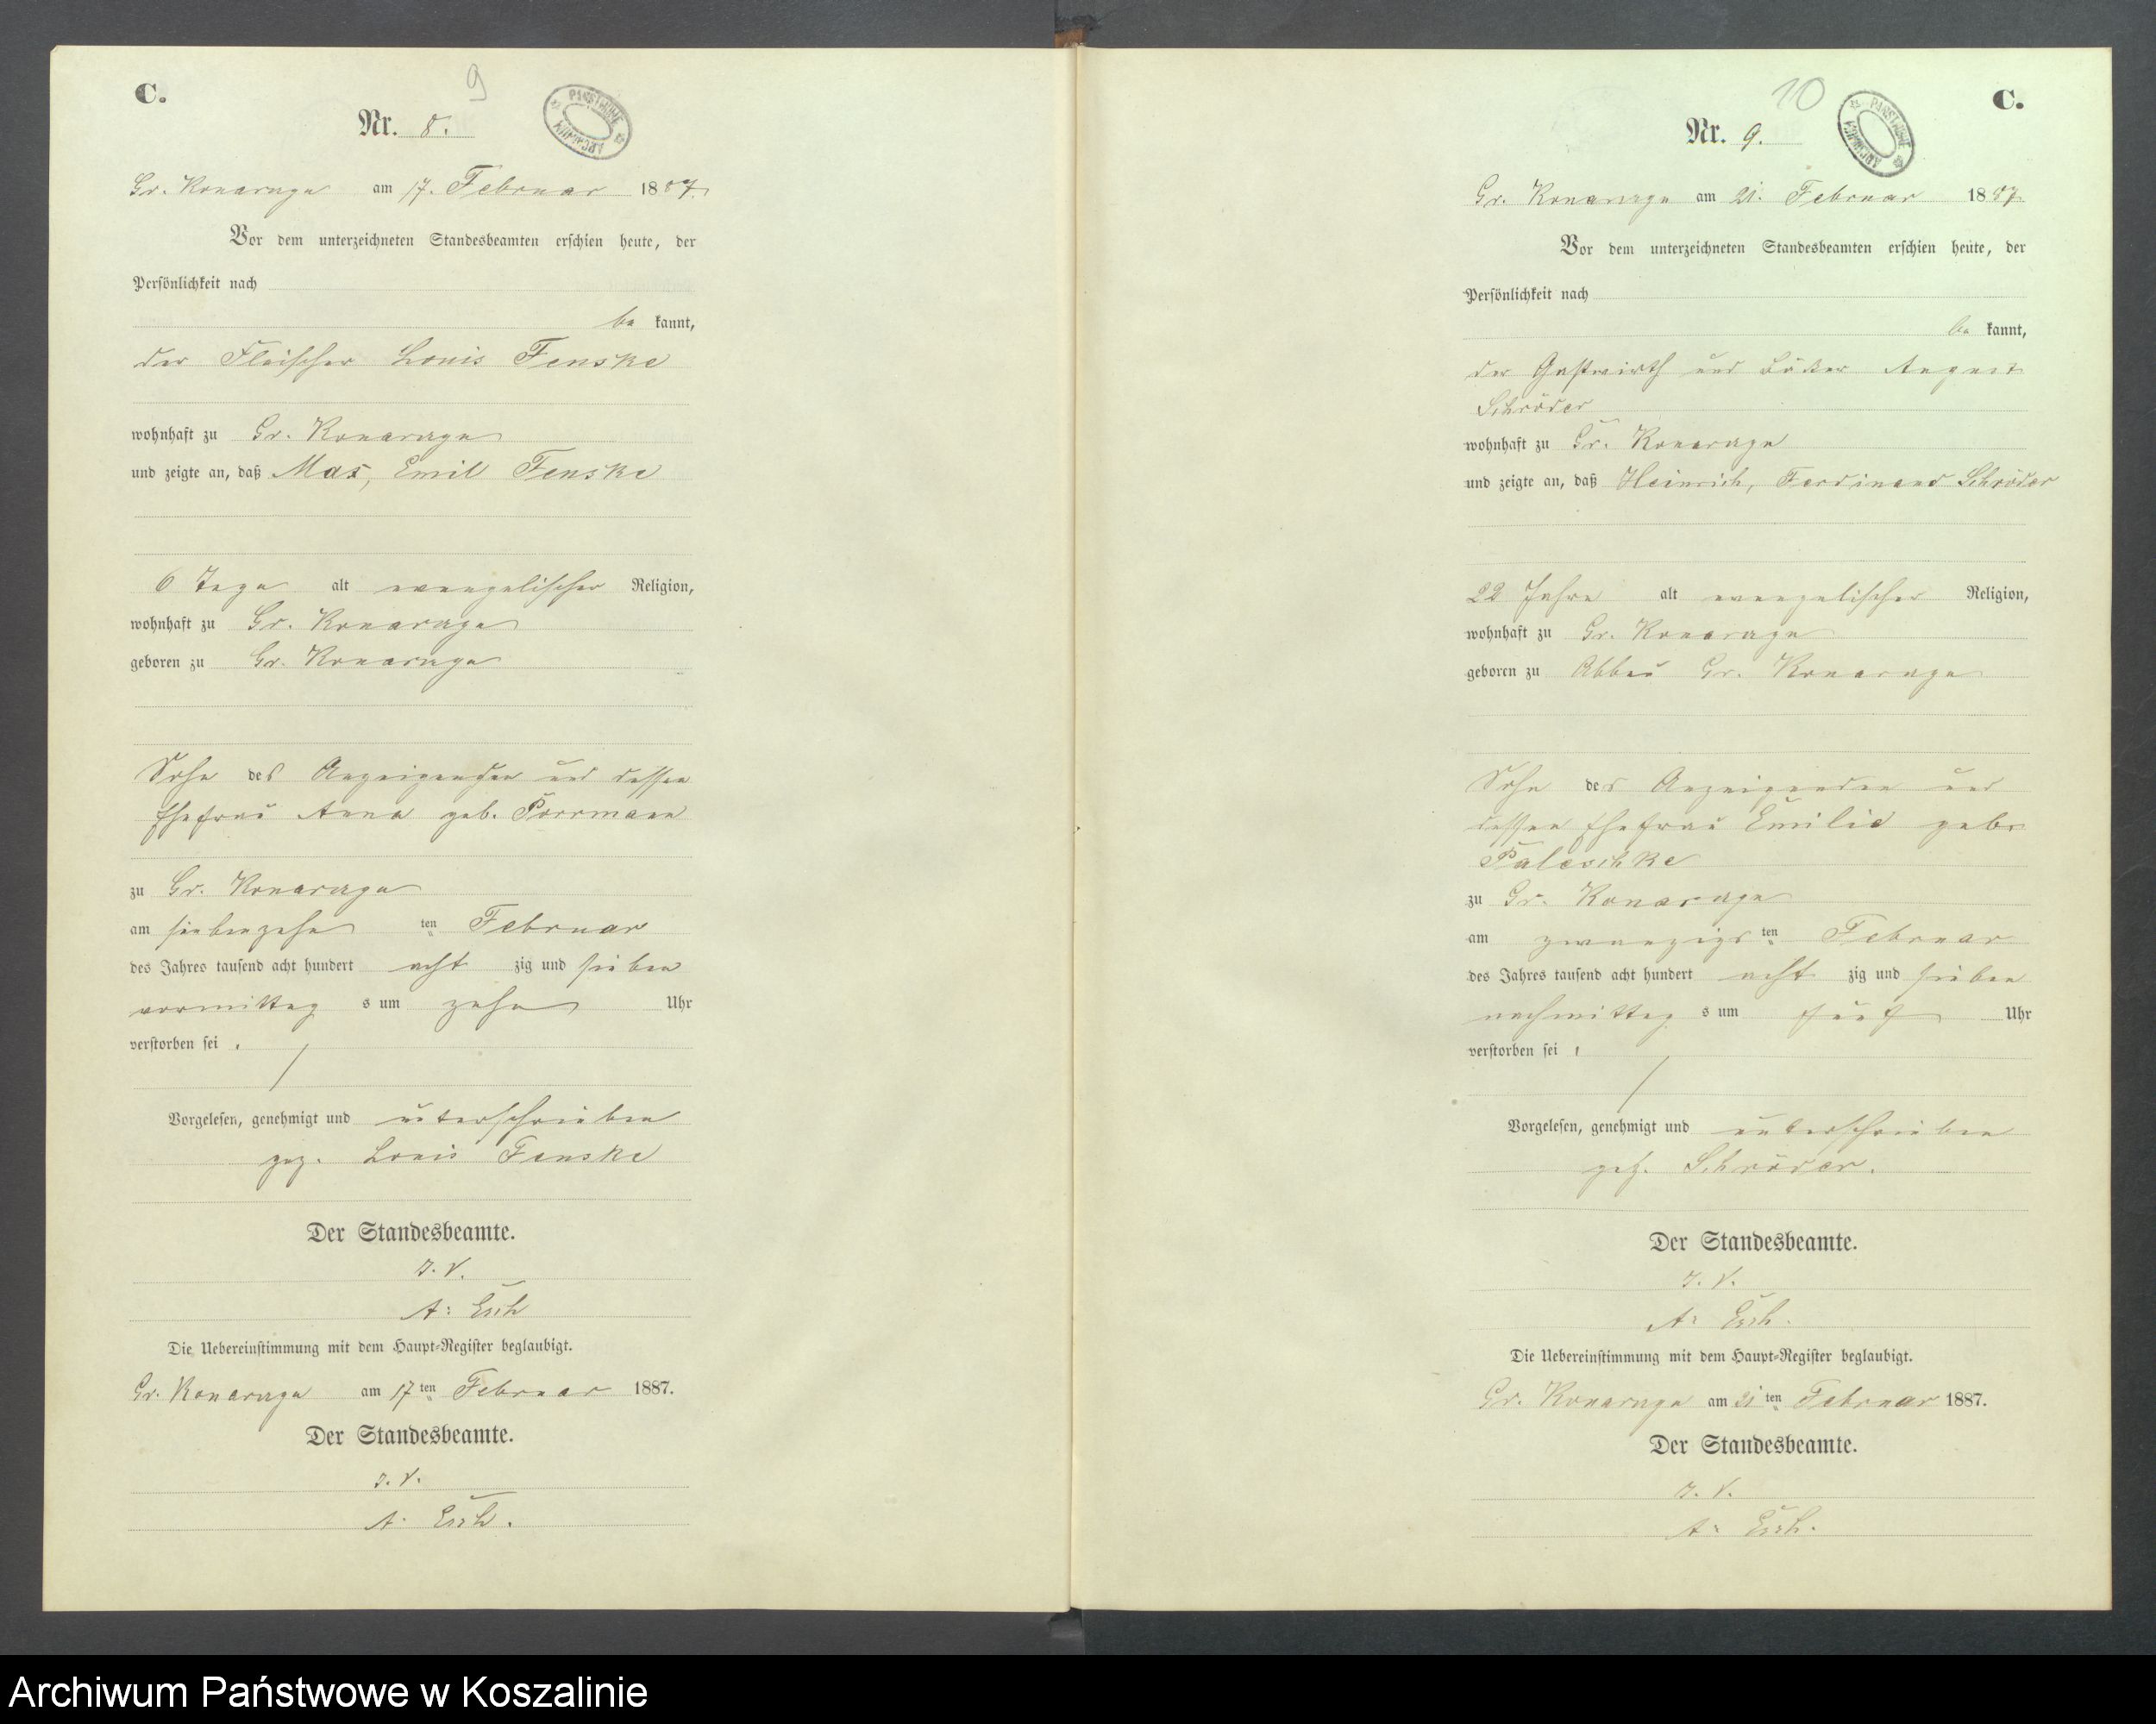 C.
9
Nr. 8.
PAŃSTWOWE ARCHIWUM
Gr. Konarzyn am 17. Februar 1887.
Vor dem unterzeichneten Standesbeamten erschien heute, der
Persönlichkeit nach
be kannt,
der Fleischer Louis Fenske
wohnhaft zu Gr. Konarzyn
und zeigte an, daß Max, Emil Fenske
6 Tage alt evangelischer Religion,
wohnhaft zu Gr. Konarzyn
geboren zu Gr. Konarzyn
Sohn des Anzeigenden und dessen
Ehefrau Anna geb. Porrmann
zu Gr. Konarzyn
am siebenzehn ten Februar
des Jahres tausend acht hundert acht zig und sieben
vormittag s um zehn Uhr
verstorben sei.
Vorgelesen, genehmigt und unterschrieben
gez. Louis Fenske
Der Standesbeamte.
I. V.
A. Esch
Die Uebereinstimmung mit dem Haupt-Register beglaubigt.
Gr. Konarzyn am 17ten Februar 1887.
Der Standesbeamte.
I. V.
A. Esch.
10
C.
Nr. 9.
PAŃSTWOWE ARCHIWUM
Gr. Konarzyn am 21. Februar 1887.
Vor dem unterzeichneten Standesbeamten erschien heute, der
Persönlichkeit nach
be kannt,
der Gastwirth und Bäcker August
Schröder
wohnhaft zu Gr. Konarzyn
und zeigte an, daß Heinrich, Ferdinand Schröder
22 Jahre alt evangelischer Religion,
wohnhaft zu Gr. Konarzyn
geboren zu Abbau Gr. Konarzyn
Sohn des Anzeigenden und
dessen Ehefrau Emilie geb.
Paleschke
zu Gr. Konarzyn
am zwanzigsten Februar
des Jahres tausend acht hundert acht zig und sieben
nachmittag s um fünf Uhr
verstorben sei.
Vorgelesen, genehmigt und unterschrieben
gez. Schröder.
Der Standesbeamte.
I. V.
A. Esch.
Die Uebereinstimmung mit dem Haupt-Register beglaubigt.
Gr. Konarzyn am 21ten Februar 1887.
Der Standesbeamte.
I. V.
A. Esch.
Archiwum Państwowe w Koszalinie